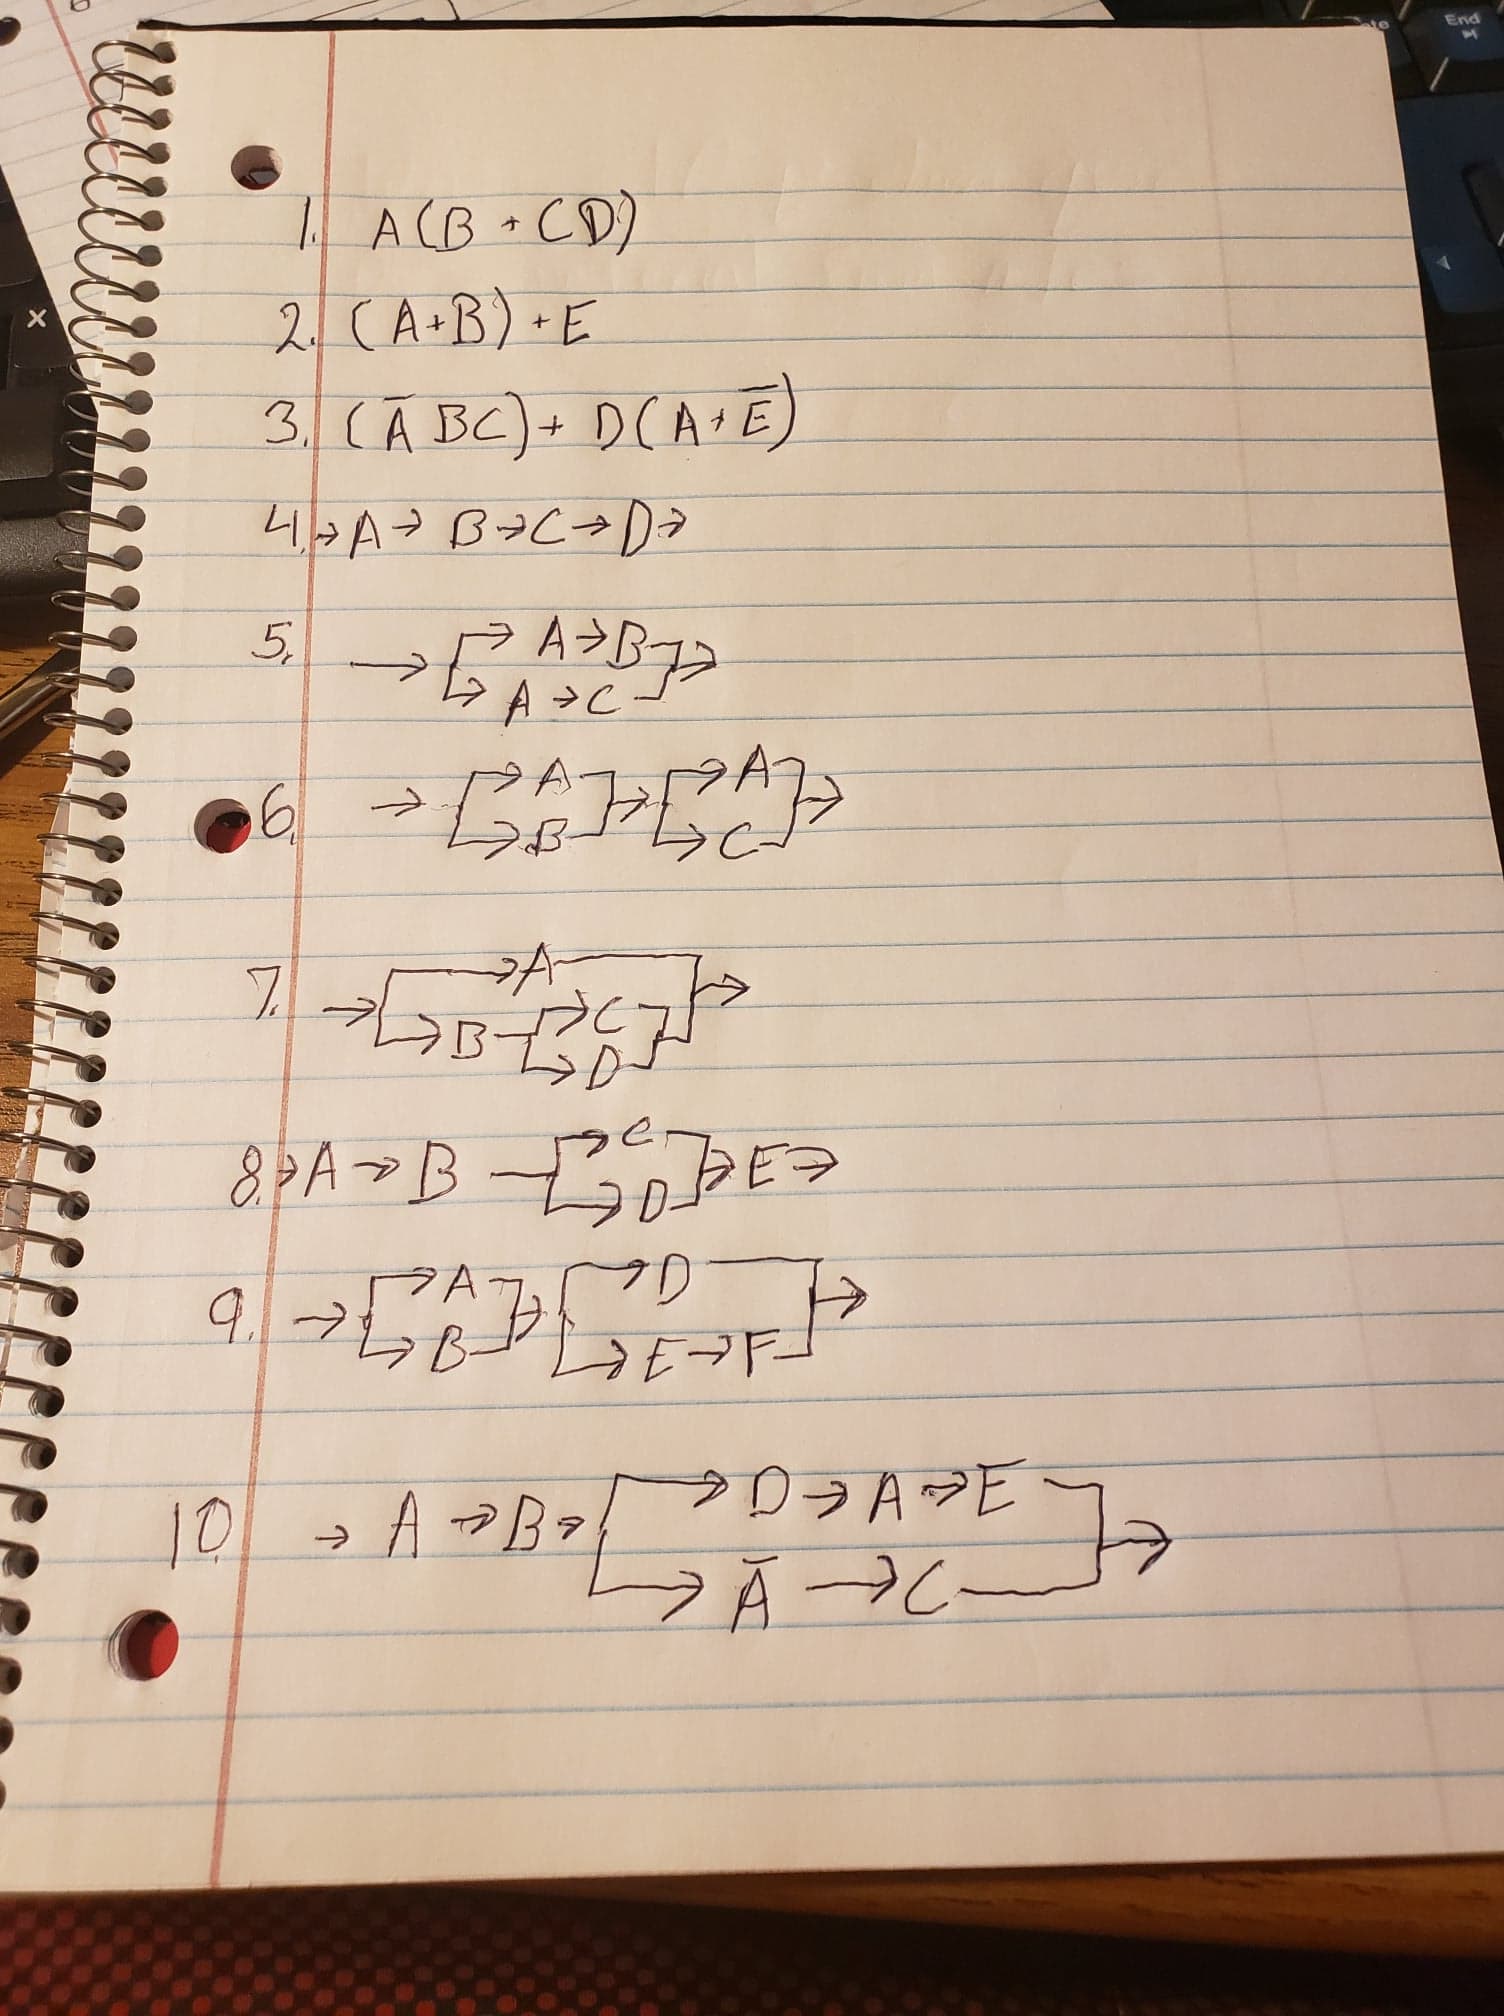 End
1. A(B + CD)
2. (A+B) + E
3. (Ā BC) + D(A + Ē)
4. → A → B → C → D →
5. → → A → B →
→ A → C
6. → → A → → A →
→ B → C
7. → → A →
→ B → C
→ D
8. → A → B → C → E →
→ D
9. → → A → → D →
→ B → E → F
10. → A → B → → D → A → E →
→ Ā → C